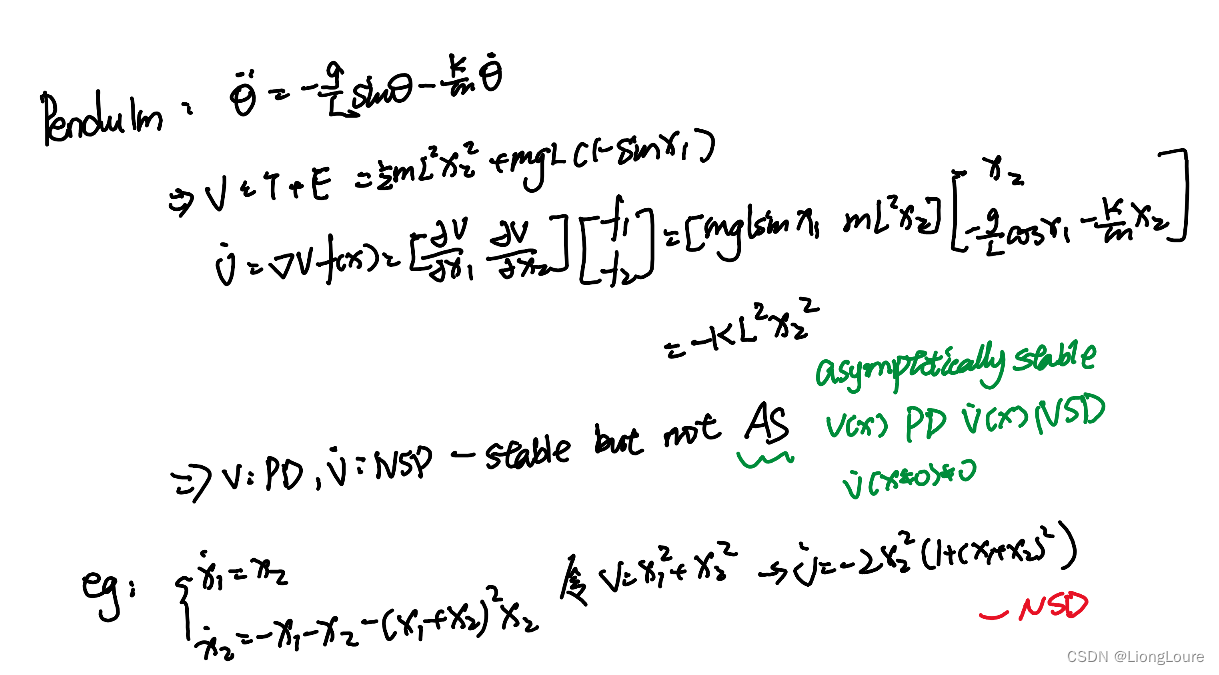 Pendulm: θ̈ = -g/L sinθ - k/m θ̇
⇒ V = T + E = ½mL²x₂² + mgL(1-sinx₁)
V̇ = ∇V f(x) = [∂V/∂x₁ ∂V/∂x₂] [f₁ f₂] = [mglsinx₁ mL²x₂] [x₂ -g/L cosx₁ - k/m x₂]
= -KL²x₂²
asymptotically stable
V(x) PD V̇(x) NSD
V̇(x≠0)≠0
⇒ V: PD, V̇: NSD - stable but not AS
eg: { ẋ₁ = x₂
ẋ₂ = -x₁ - x₂ - (x₁+x₂)²x₂
令 V = x₁² + x₂² → V̇ = -2x₂²(1+(x₁+x₂)²)
- NSD
CSDN @LiongLoure